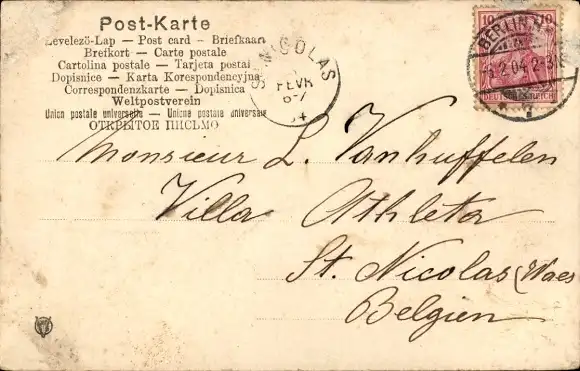 Post-Karte
Levelező-Lap — Post card — Briefkaart
Brefkort — Carte postale
Cartolina postale — Tarjeta postal
Dopisnice — Karta Korespondencyjna
Correspondenzkarte — Dopisnica
Weltpostverein
Union postale universelle — Unione postale universale
ОТКРЫТОЕ ПИСЬМО
NICOLAS
FEVR
6-7
10 10
BERLIN
2.04 2-3
DEUTSCHES REICH
Monsieur L. Vanhuffelen
Villa Athleta
St. Nicolas (Waes
Belgien